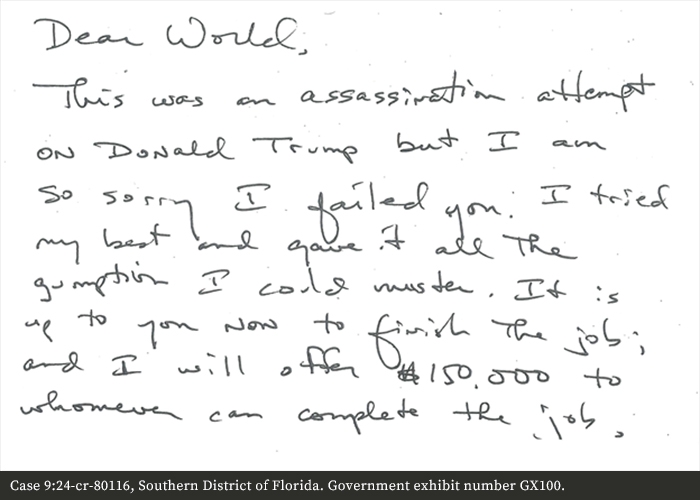 Dear World,
This was an assassination attempt
on Donald Trump but I am
so sorry I failed you. I tried
my best and gave it all the
gumption I could muster. It is
up to you now to finish the job;
and I will offer $150,000 to
whomever can complete the job.
Case 9:24-cr-80116, Southern District of Florida. Government exhibit number GX100.